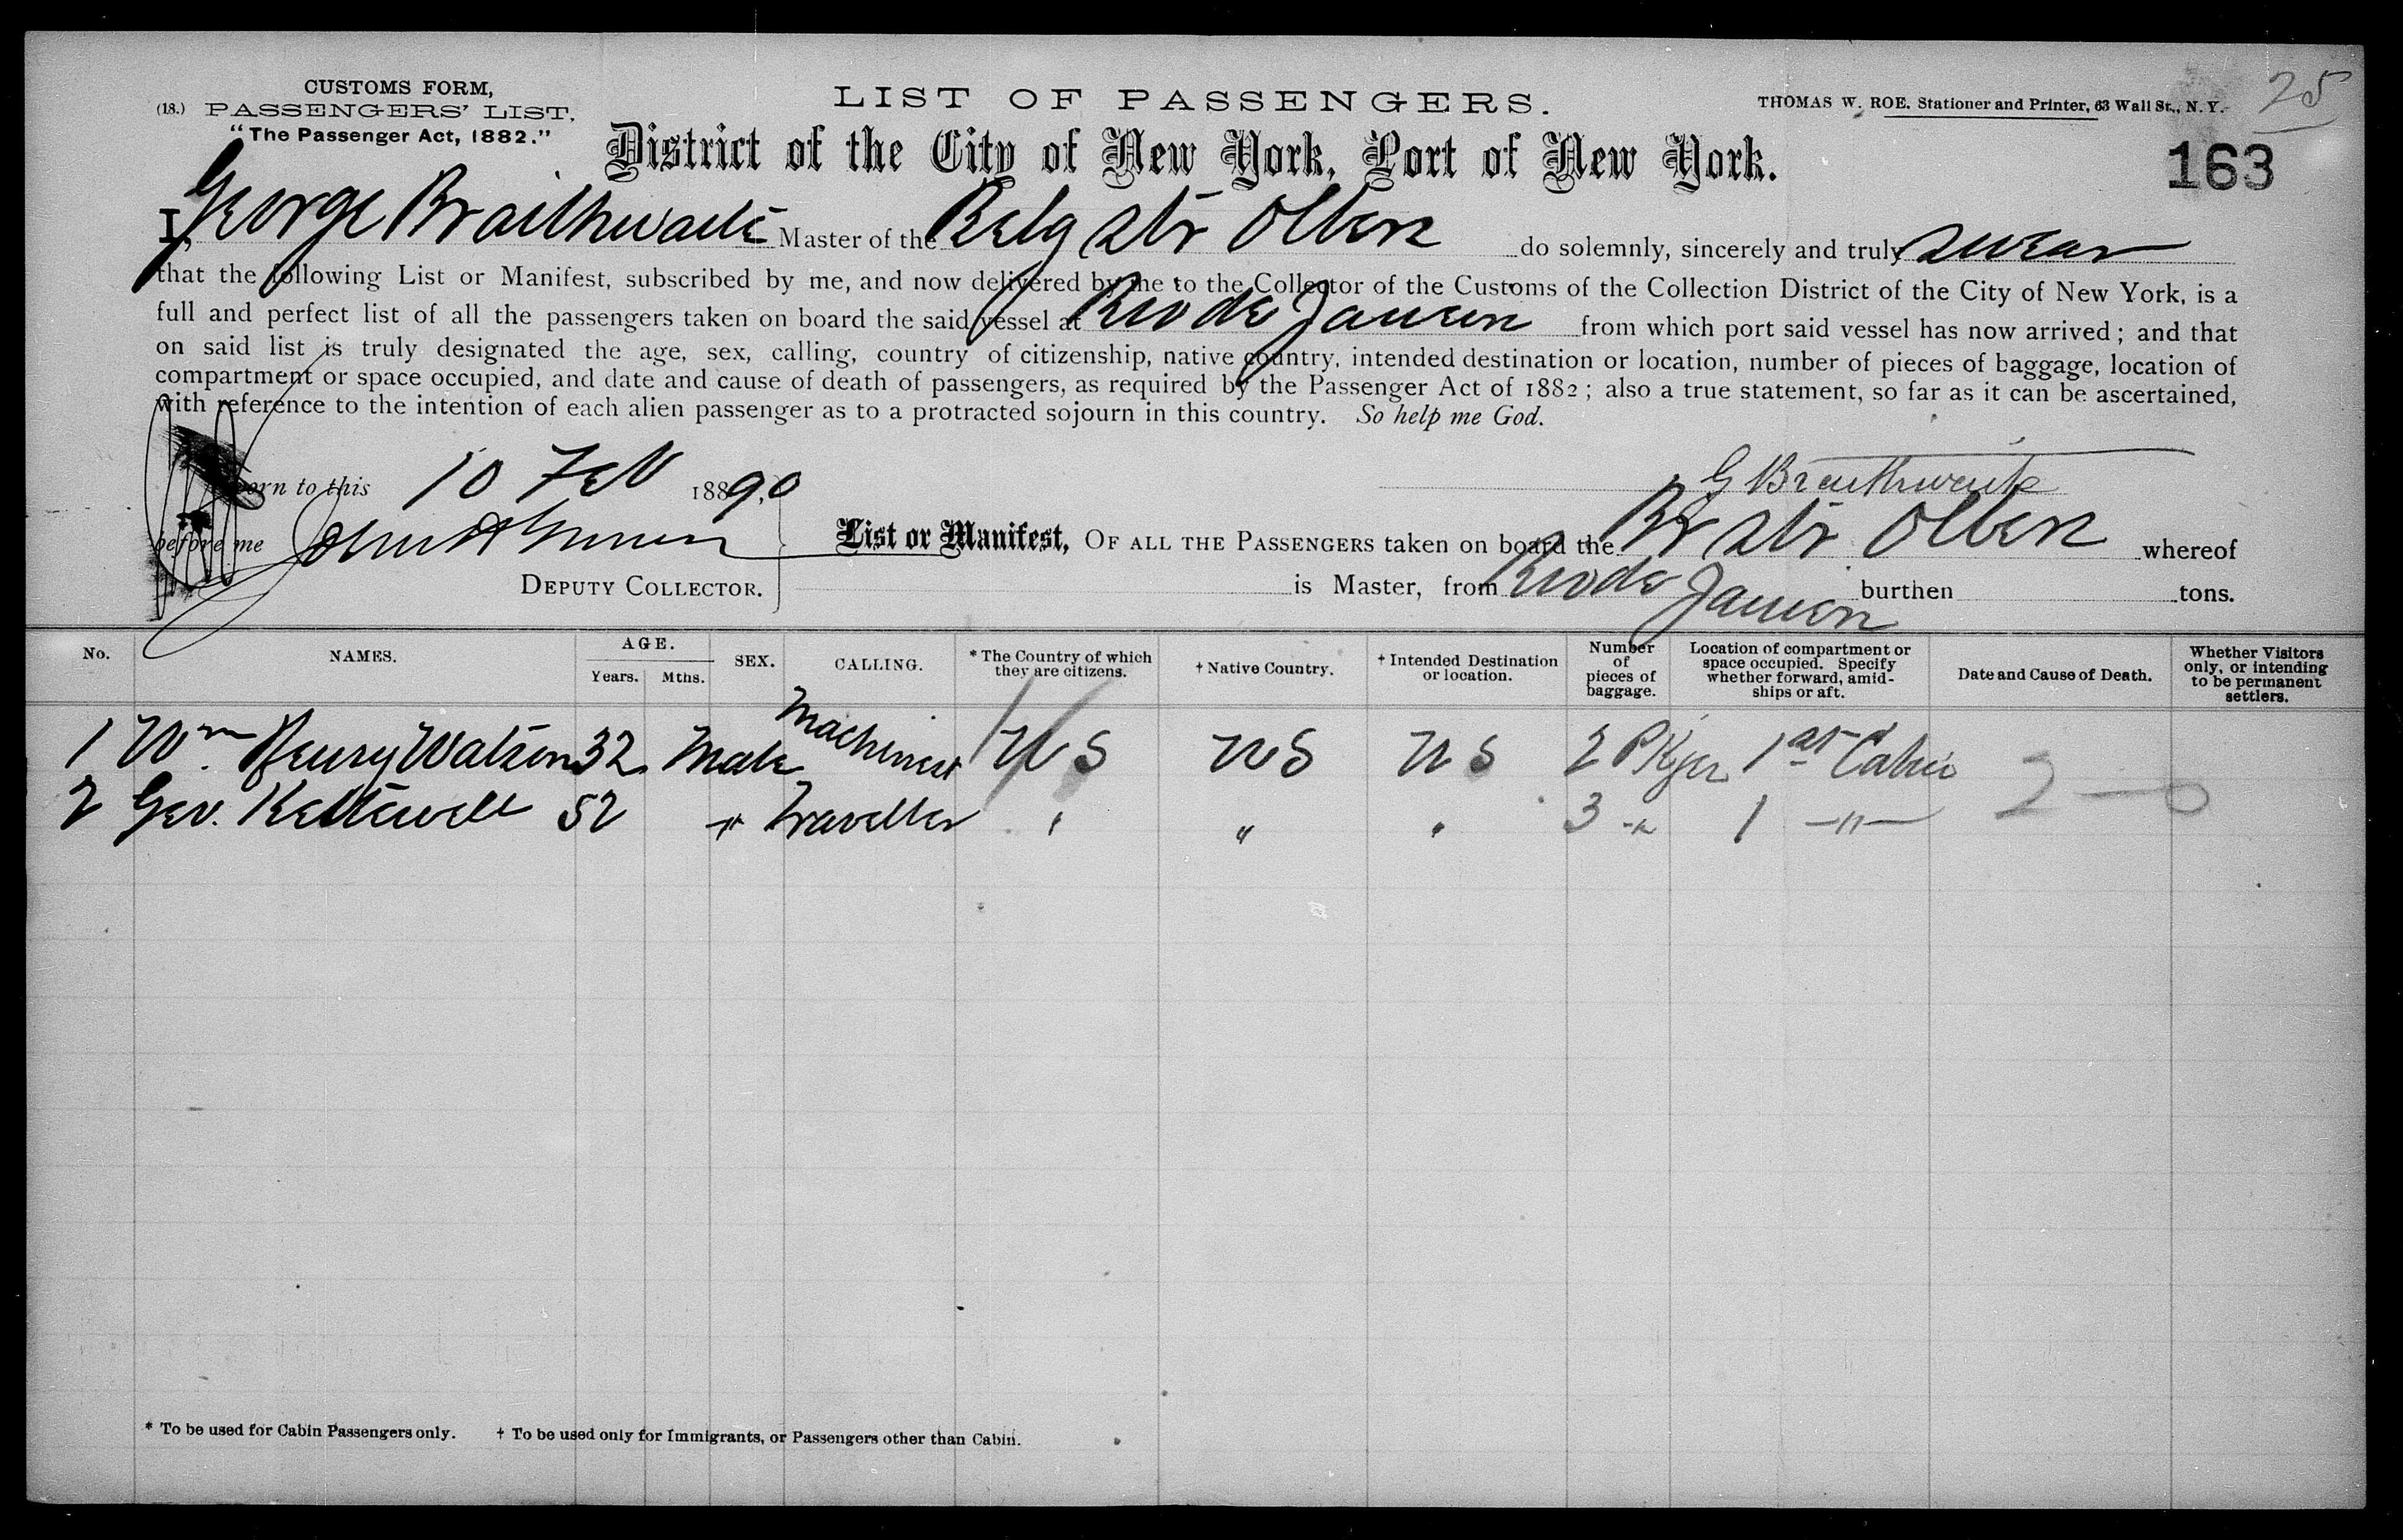 CUSTOMS FORM,
(18.) PASSENGERS' LIST,
"The Passenger Act, 1882."
LIST OF PASSENGERS.
THOMAS W. ROE. Stationer and Printer, 63 Wall St., N. Y.
25
District of the City of New York, Port of New York.
163
I, George Braithwaite Master of the Belg Str Olbers do solemnly, sincerely and truly swear
that the following List or Manifest, subscribed by me, and now delivered by me to the Collector of the Customs of the Collection District of the City of New York, is a
full and perfect list of all the passengers taken on board the said vessel at Rio de Janeiro from which port said vessel has now arrived; and that
on said list is truly designated the age, sex, calling, country of citizenship, native country, intended destination or location, number of pieces of baggage, location of
compartment or space occupied, and date and cause of death of passengers, as required by the Passenger Act of 1882; also a true statement, so far as it can be ascertained,
with reference to the intention of each alien passenger as to a protracted sojourn in this country. So help me God.
Sworn to this 10 Feb 1890
G Braithwaite
before me
DEPUTY COLLECTOR.
List or Manifest, OF ALL THE PASSENGERS taken on board the Br Str Olbers whereof
is Master, from Rio de Janeiro burthen tons.
No. NAMES. AGE. Years. Mths. SEX. CALLING. * The Country of which they are citizens. † Native Country. † Intended Destination or location. Number of pieces of baggage. Location of compartment or space occupied. Specify whether forward, amidships or aft. Date and Cause of Death. Whether Visitors only, or intending to be permanent settlers.
1 Wm Henry Watson 32 Male Machinist U S U S U S 2 Pkgs 1st Cabin
2 Geo. Kettewell 52 " Traveller " " " 3 " 1 -"-
2 — 0
* To be used for Cabin Passengers only. † To be used only for Immigrants, or Passengers other than Cabin.